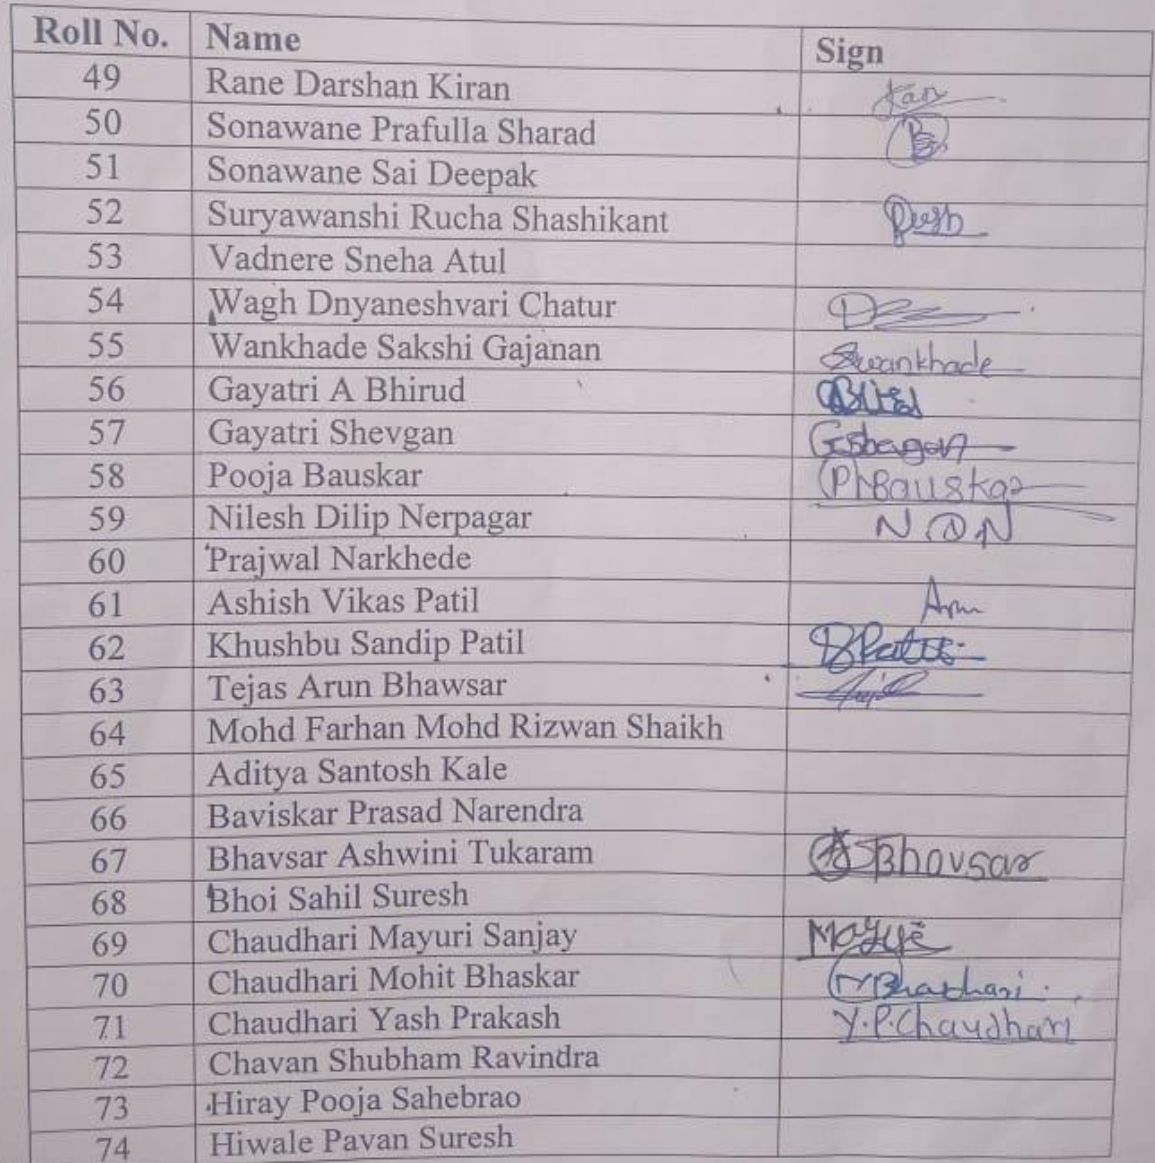 Roll No. Name Sign
49 Rane Darshan Kiran
50 Sonawane Prafulla Sharad
51 Sonawane Sai Deepak
52 Suryawanshi Rucha Shashikant
53 Vadnere Sneha Atul
54 Wagh Dnyaneshvari Chatur
55 Wankhade Sakshi Gajanan Swankhade
56 Gayatri A Bhirud
57 Gayatri Shevgan
58 Pooja Bauskar PhBauskar
59 Nilesh Dilip Nerpagar NDN
60 Prajwal Narkhede
61 Ashish Vikas Patil
62 Khushbu Sandip Patil
63 Tejas Arun Bhawsar
64 Mohd Farhan Mohd Rizwan Shaikh
65 Aditya Santosh Kale
66 Baviskar Prasad Narendra
67 Bhavsar Ashwini Tukaram Bhavsar
68 Bhoi Sahil Suresh
69 Chaudhari Mayuri Sanjay
70 Chaudhari Mohit Bhaskar
71 Chaudhari Yash Prakash Y.P.Chaudhari
72 Chavan Shubham Ravindra
73 Hiray Pooja Sahebrao
74 Hiwale Pavan Suresh